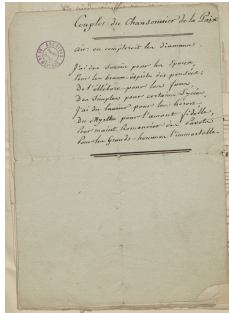 Couplet du Chansonnier de la Paix
air: on compterait les diamans
J'ai des Soucis pour les Époux,
Pour les beaux esprits des pensées;
De l'ellébore pour les fous,
Des Simples pour certains Lycées,
J'ai du laurier pour les héros
Du Myrthe pour l'amant fidèle,
Pour maint Romancier des Pavots
Pour les Grands hommes l'immortelle.